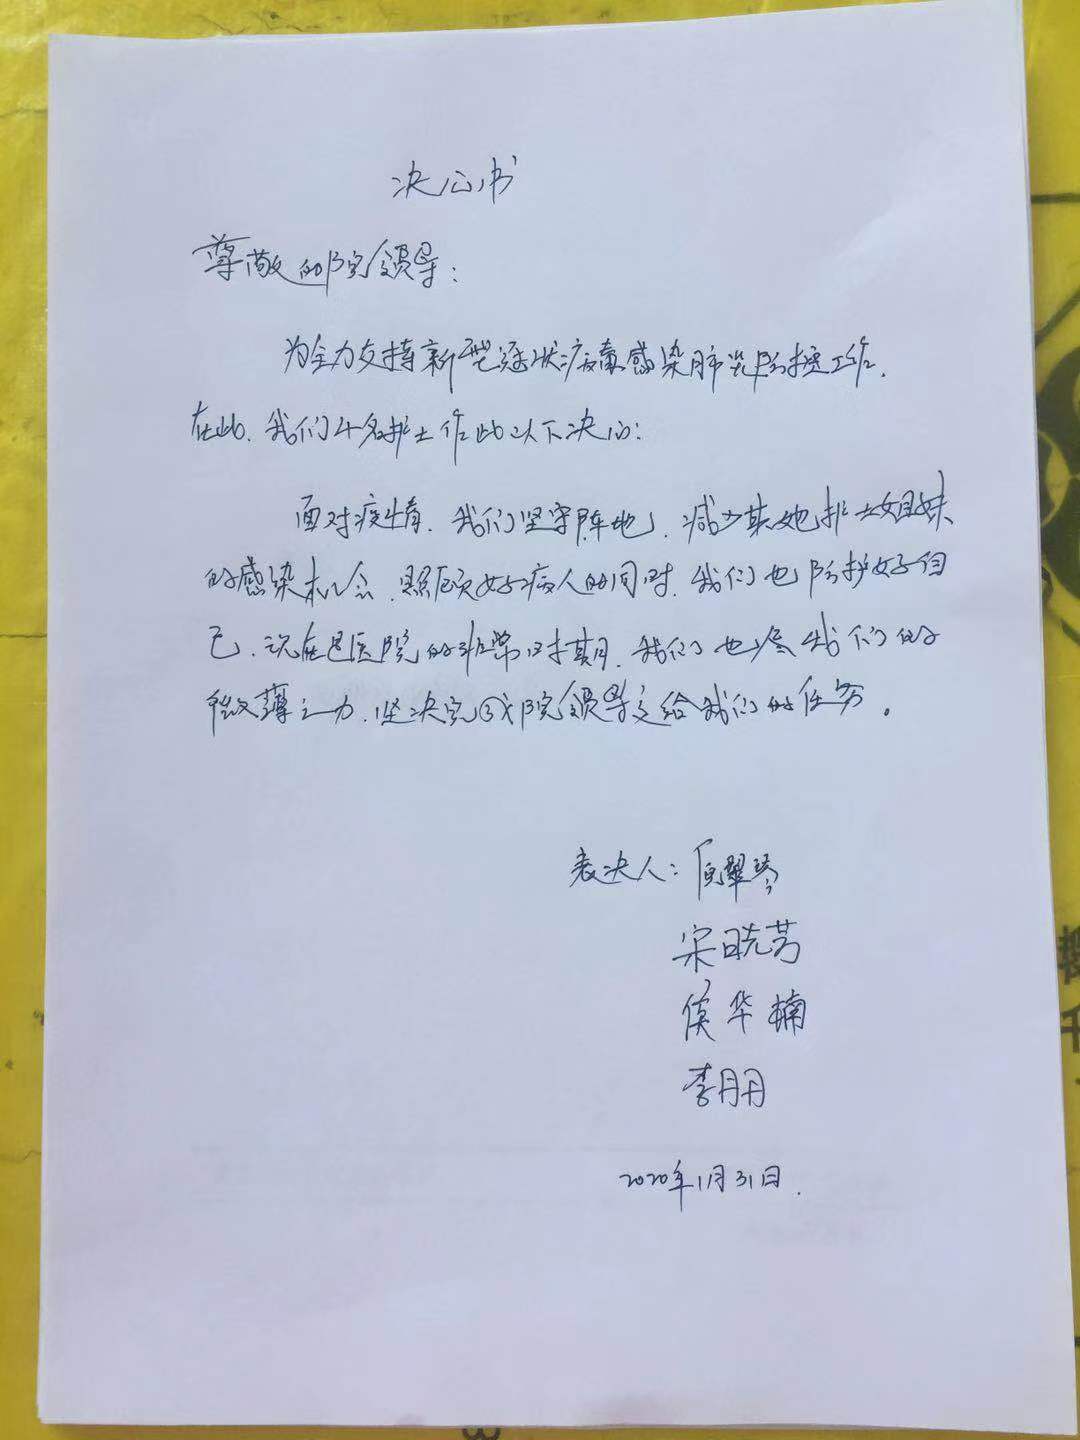 决心书
尊敬的院领导：
为全力支持新型冠状病毒感染肺炎防控工作.
在此.我们4名护士作此以下决心：
面对疫情.我们坚守阵地,减少其她护士姐妹
的感染机会.照顾好病人的同时.我们也防护好自
己.现在是医院的非常时期.我们也尽我们的
微薄之力.坚决完成院领导交给我们的任务。
表决人：原翠琴
宋晓芳
侯华楠
李朋
2020年1月31日.